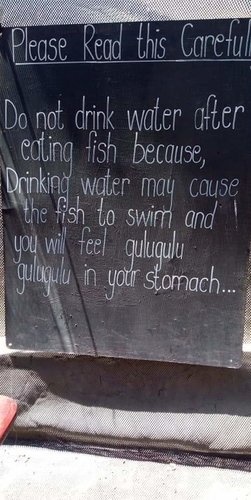 Please Read this Careful
Do not drink water after
eating fish because,
Drinking water may cause
the fish to swim and
you will feel gulugulu
gulugulu in your stomach...